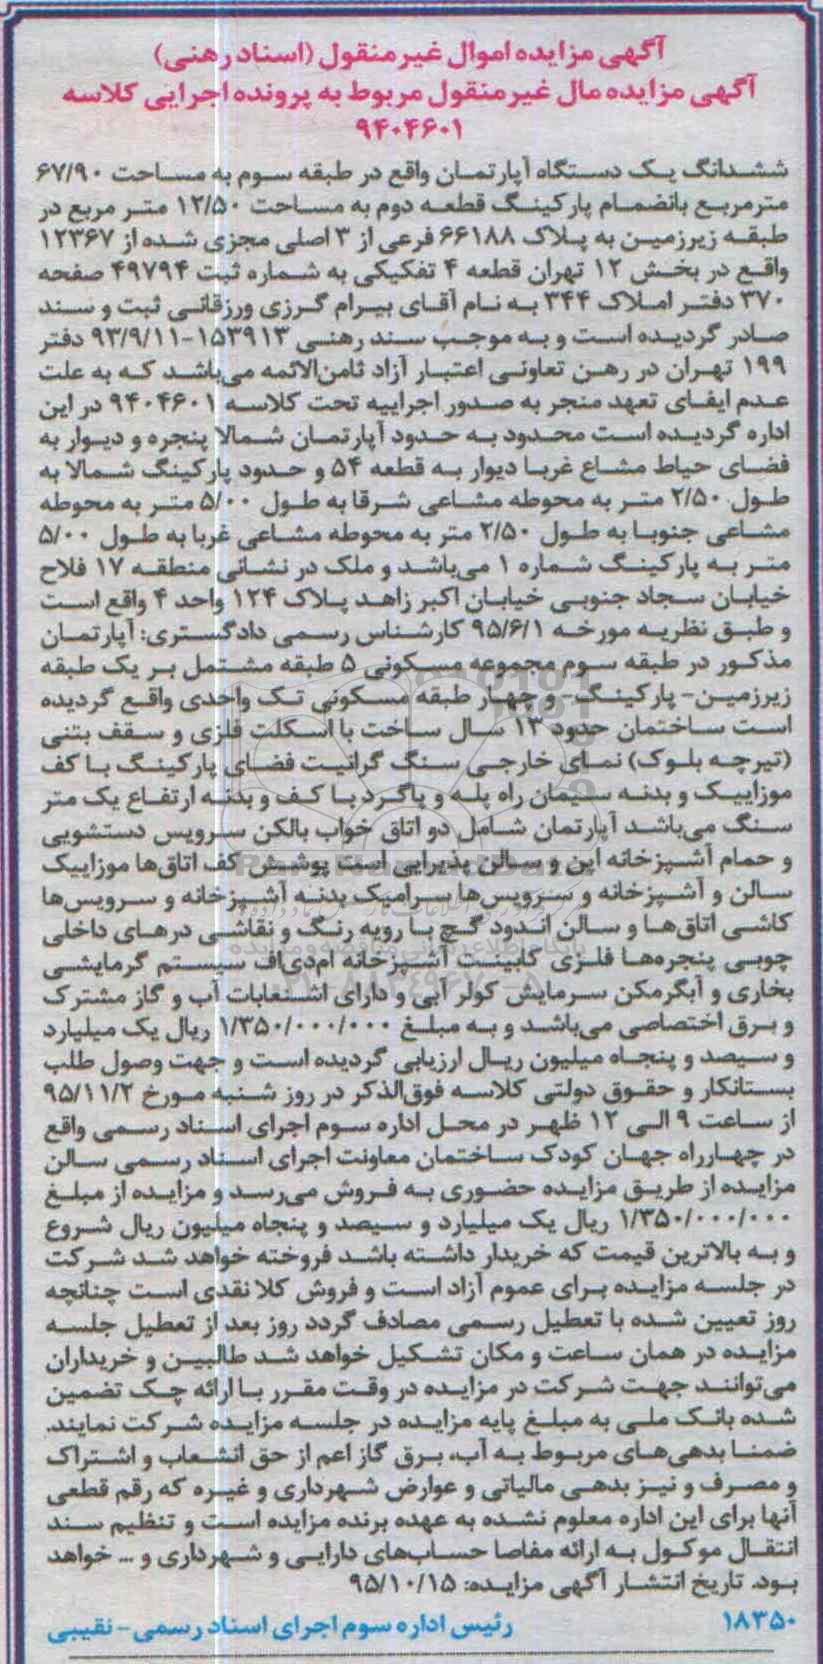 آگهی مزایده اموال غیرمنقول (اسناد رهنی)
آگهی مزایده مال غیرمنقول مربوط به پرونده اجرایی کلاسه
۹۴۰۴۶۰۱
ششدانگ یک دستگاه آپارتمان واقع در طبقه سوم به مساحت ۶۷/۹۰
مترمربع بانضمام پارکینگ قطعه دوم به مساحت ۱۲/۵۰ متر مربع در
طبقه زیرزمین به پلاک ۶۶۱۸۸ فرعی از ۳ اصلی مجزی شده از ۱۲۳۶۷
واقع در بخش ۱۲ تهران قطعه ۴ تفکیکی به شماره ثبت ۴۹۷۹۴ صفحه
۳۷۰ دفتر املاک ۳۴۴ به نام آقای بیرام گرزی ورزقانی ثبت و سند
صادر گردیده است و به موجب سند رهنی ۱۵۳۹۱۳-۹۳/۹/۱۱ دفتر
۱۹۹ تهران در رهن تعاونی اعتبار آزاد ثامن‌الائمه می‌باشد که به علت
عدم ایفای تعهد منجر به صدور اجراییه تحت کلاسه ۹۴۰۴۶۰۱ در این
اداره گردیده است محدود به حدود آپارتمان شمالا پنجره و دیوار به
فضای حیاط مشاع غربا دیوار به قطعه ۵۴ و حدود پارکینگ شمالا به
طول ۲/۵۰ متر به محوطه مشاعی شرقا به طول ۵/۰۰ متر به محوطه
مشاعی جنوبا به طول ۲/۵۰ متر به محوطه مشاعی غربا به طول ۵/۰۰
متر به پارکینگ شماره ۱ می‌باشد و ملک در نشانی منطقه ۱۷ فلاح
خیابان سجاد جنوبی خیابان اکبر زاهد پلاک ۱۲۴ واحد ۴ واقع است
و طبق نظریه مورخه ۹۵/۶/۱ کارشناس رسمی دادگستری: آپارتمان
مذکور در طبقه سوم مجموعه مسکونی ۵ طبقه مشتمل بر یک طبقه
زیرزمین- پارکینگ- و چهار طبقه مسکونی تک واحدی واقع گردیده
است ساختمان حدود ۱۳ سال ساخت با اسکلت فلزی و سقف بتنی
(تیرچه بلوک) نمای خارجی سنگ گرانیت فضای پارکینگ با کف
موزاییک و بدنه سیمان راه پله و پاگرد با کف و بدنه ارتفاع یک متر
سنگ می‌باشد آپارتمان شامل دو اتاق خواب بالکن سرویس دستشویی
و حمام آشپزخانه اپن و سالن پذیرایی است پوشش کف اتاق‌ها موزاییک
سالن و آشپزخانه و سرویس‌ها سرامیک بدنه آشپزخانه و سرویس‌ها
کاشی اتاق‌ها و سالن اندود گچ با رویه رنگ و نقاشی درهای داخلی
چوبی پنجره‌ها فلزی کابینت آشپزخانه ام‌دی‌اف سیستم گرمایشی
بخاری و آبگرمکن سرمایش کولر آبی و دارای اشنعابات آب و گاز مشترک
و برق اختصاصی می‌باشد و به مبلغ ۱/۳۵۰/۰۰۰/۰۰۰ ریال یک میلیارد
و سیصد و پنجاه میلیون ریال ارزیابی گردیده است و جهت وصول طلب
بستانکار و حقوق دولتی کلاسه فوق‌الذکر در روز شنبه مورخ ۹۵/۱۱/۲
از ساعت ۹ الی ۱۲ ظهر در محل اداره سوم اجرای اسناد رسمی واقع
در چهارراه جهان کودک ساختمان معاونت اجرای اسناد رسمی سالن
مزایده از طریق مزایده حضوری به فروش می‌رسد و مزایده از مبلغ
۱/۳۵۰/۰۰۰/۰۰۰ ریال یک میلیارد و سیصد و پنجاه میلیون ریال شروع
و به بالاترین قیمت که خریدار داشته باشد فروخته خواهد شد شرکت
در جلسه مزایده برای عموم آزاد است و فروش کلا نقدی است چنانچه
روز تعیین شده با تعطیل رسمی مصادف گردد روز بعد از تعطیل جلسه
مزایده در همان ساعت و مکان تشکیل خواهد شد طالبین و خریداران
می‌توانند جهت شرکت در مزایده در وقت مقرر با ارائه چک تضمین
شده بانک ملی به مبلغ پایه مزایده در جلسه مزایده شرکت نمایند.
ضمنا بدهی‌های مربوط به آب، برق گاز اعم از حق انشعاب و اشتراک
و مصرف و نیز بدهی مالیاتی و عوارض شهرداری و غیره که رقم قطعی
آنها برای این اداره معلوم نشده به عهده برنده مزایده است و تنظیم سند
انتقال موکول به ارائه مفاصا حساب‌های دارایی و شهرداری و ... خواهد
بود. تاریخ انتشار آگهی مزایده: ۹۵/۱۰/۱۵
۱۸۳۵۰ رئیس اداره سوم اجرای اسناد رسمی- نقیبی